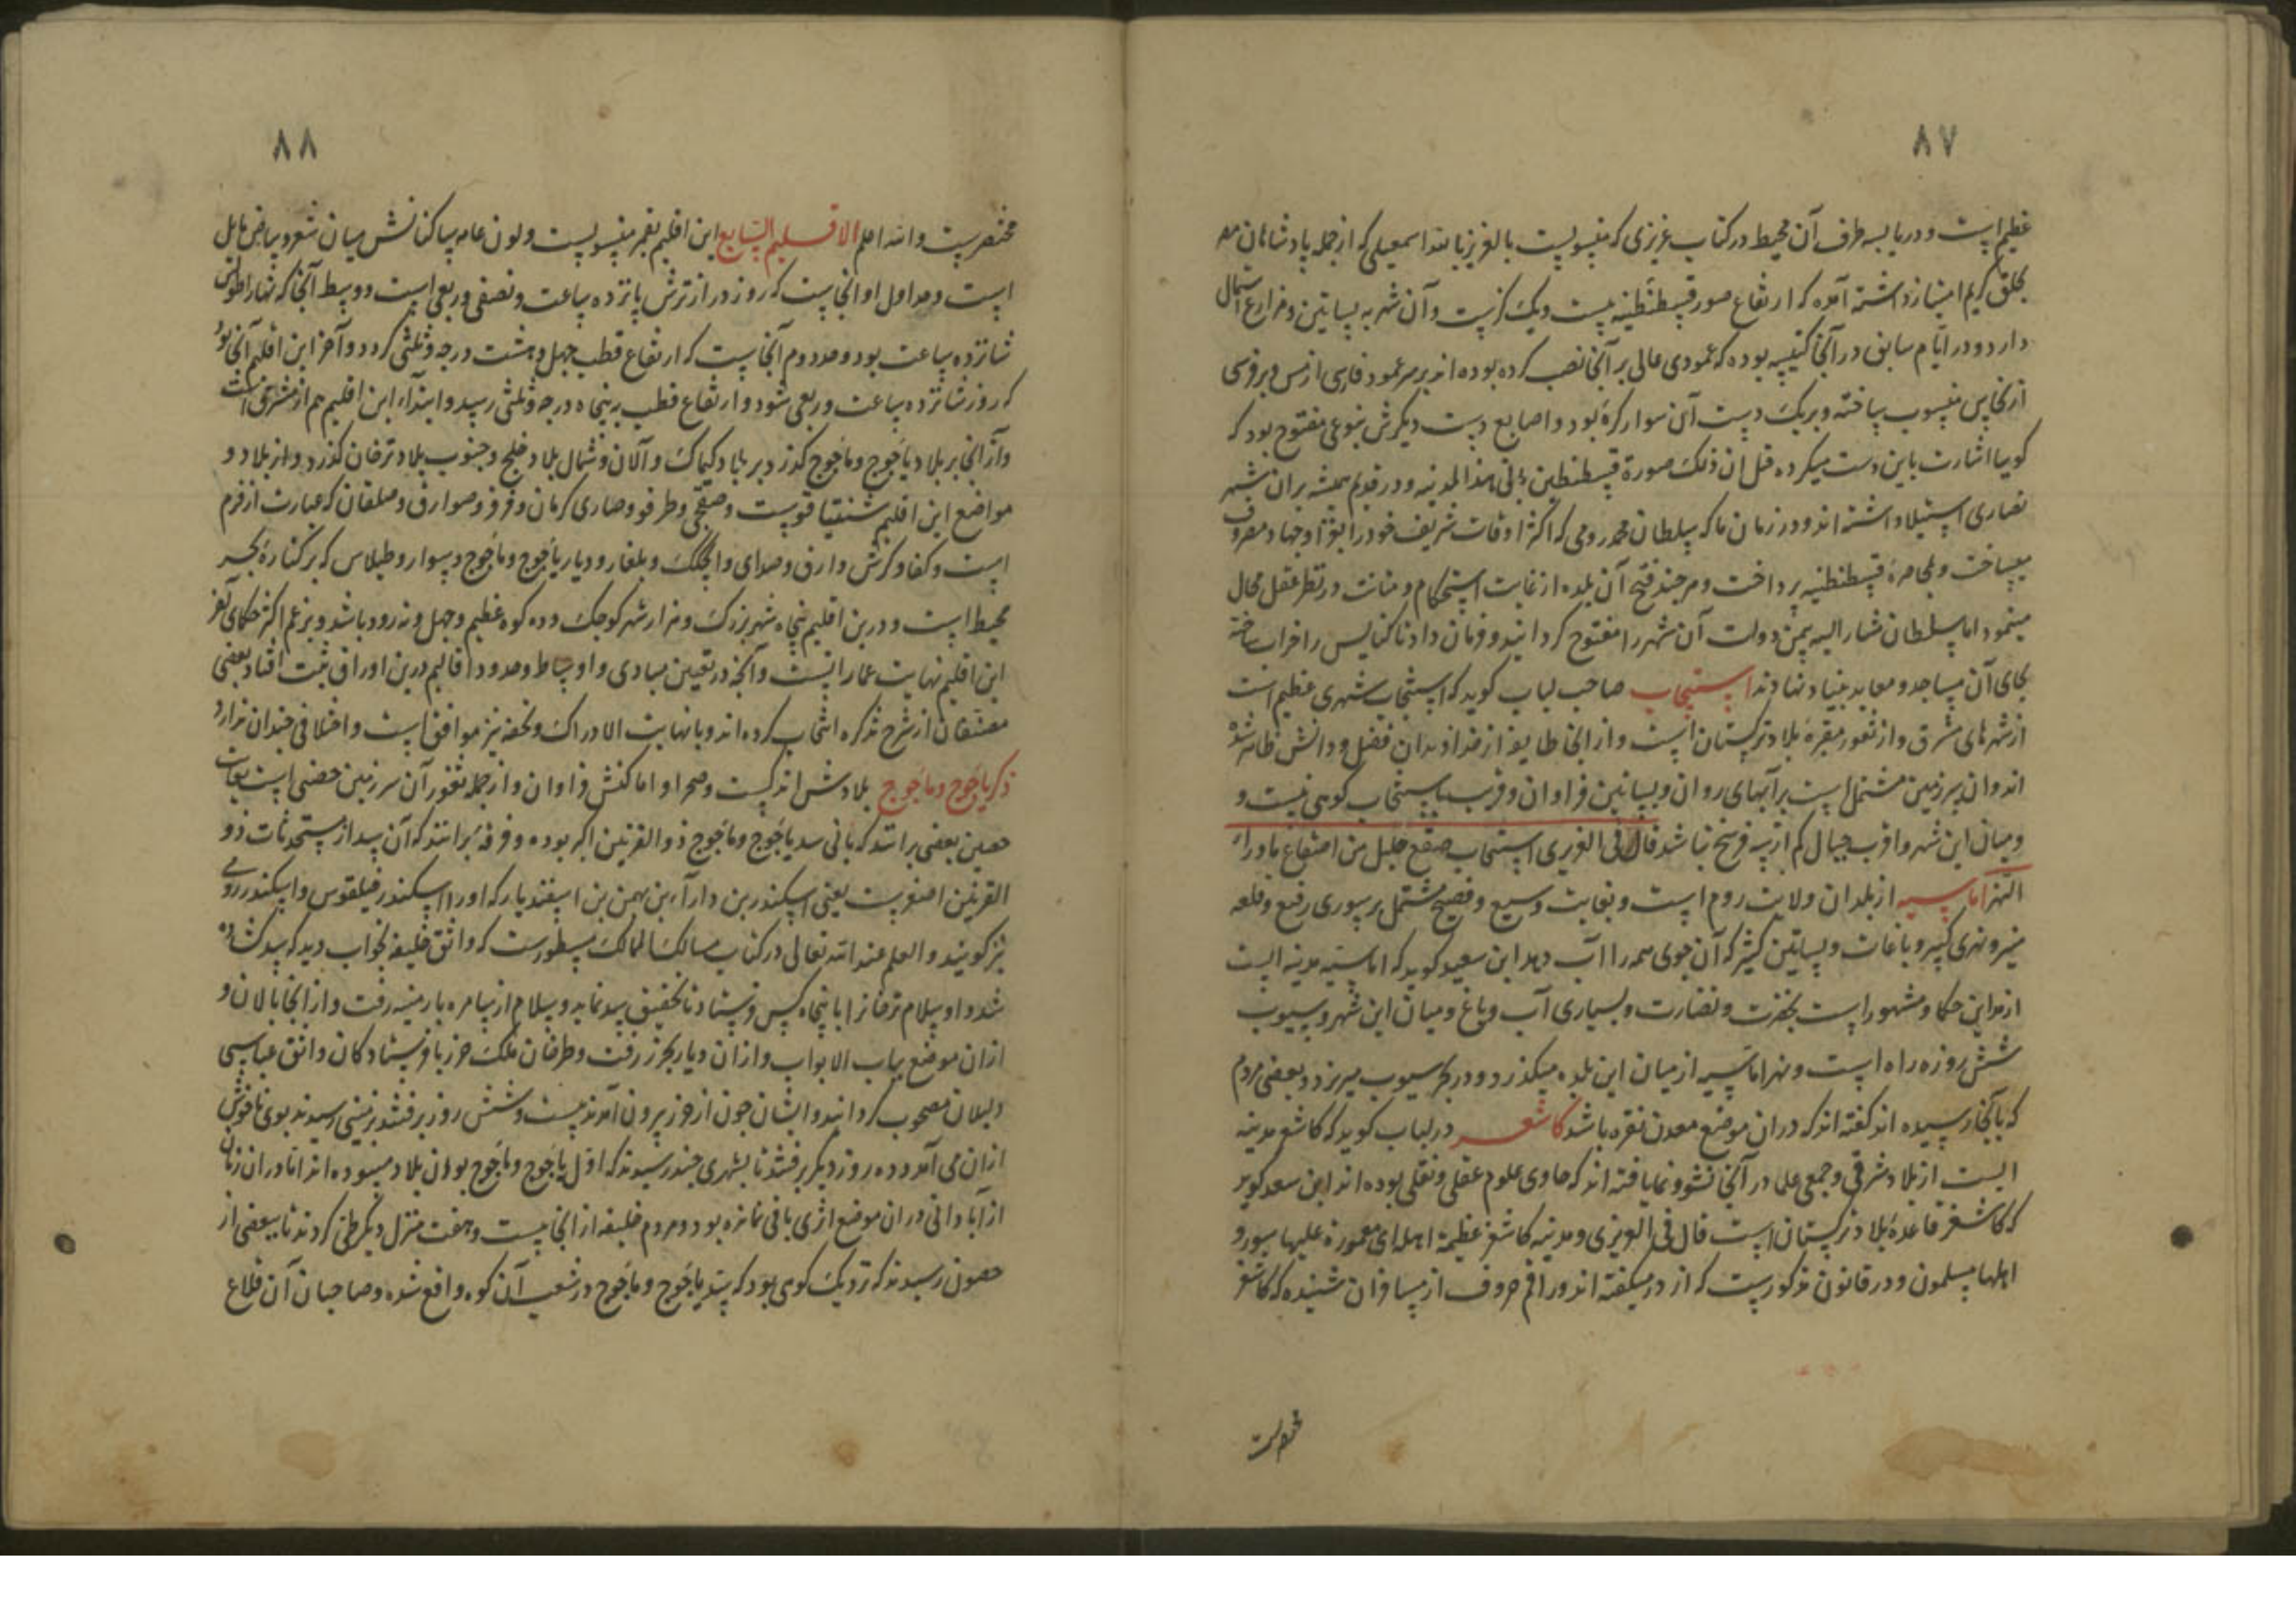 ۸۷
عظیم است و دریا بسه طرف آن محیط در کتاب عزیزی که منسوبست بالعزیز بالله اسمعیلی که از جمله پادشاهان مصر
بخلق کریم امتیاز داشته آمده که ارتفاع سور قسطنطنیه بیست و یک گزیست و آن شهر به بساتین و مزارع اشتمال
دارد و در ایام سابق در آنجا کنیسه بوده که عمودی عالی بر آنجا نصب کرده بوده اند بر سر عمود فارسی از مس و بر فرسی
از نحاس منسوب ساخته و بر یک دست آن سوار کرهٔ بود و اصابع دست دیگرش بنوعی مفتوح بود که
گویا اشارت باین دست میکرده قیل ان ذلک صورة قسطنطین بانی هذا المدینه و در قدیم همیشه بران شهر
نصاری استیلا داشته اند و در زمان ما که سلطان محمد رومی که اکثر اوقات شریف خود را بغزا و جهاد مصروف
میساخت و بمحاصرهٔ قسطنطنیه پرداخت و هر چند فتح آن بلده از غایت استحکام و متانت در نظر عقل محال
مینمود اما سلطان مشار الیه بیمن دولت آن شهر را مفتوح گردانید و فرمان داد تا کنایس را خراب ساخته
بجای آن مساجد و معابد بنیاد نهادند اسپیجاب صاحب لباب گوید که اسپیجاب شهری عظیم است
از شهرهای مشرق و از ثغور مقررهٔ بلاد ترکستان است و از آنجا طایفه از خداوندان فضل و دانش ظاهر شده
اند و ان سرزمین مشتمل است بر آبهای روان و بساتین فراوان و قرب باسپیجاب کوهی نیست و
و میان این شهر و اقرب جبال کم از سه فرسخ نباشد قال فی العزیزی اسپیجاب صقع جلیل من اصقاع ماوراء
النهر اماسیه از بلدان ولایت روم است و بغایت وسیع و فصیح مشتمل بر سوری رفیع و قلعه
منیر و نهری کبیر و باغات و بساتین کثیر که آن جوی همه را آب دهد ابن سعید گوید که اماسیه مدینه ایست
از مداین حکما و مشهور است بخضرت و نضارت و بسیاری آب و باغ و میان این شهر و سیوب
شش روزه راه است و نهر اماسیه از میان این بلده میگذرد و در بحر سیوب میریزد و بعضی مردم
که بآنجا رسیده اند گفته اند که دران موضع معدن نقره باشد کاشغر در لباب گوید که کاشغر مدینه
ایست از بلاد شرقی و جمعی علما در آنجا نشو و نما یافته اند که حاوی علوم عقلی و نقلی بوده اند ابن سعد گوید
که کاشغر قاعدهٔ بلاد ترکستان است قال فی العزیزی و مدینه کاشغر عظیمة اهلة ای معمورة علیها سور و
اهلها مسلمون و در قانون مذکورست که از در میکفته اند و راقم حروف از مسافران شنیده که کاشغر
مختصریست
۸۸
مختصریست و الله اعلم الاقلیم السابع این اقلیم بقمر منسوبست و لون عامه ساکنانش میان شقره و بیاض مایل
است و حد اول او انجاست که روز درازترش پانزده ساعت و نصفی و ربعی است و وسط آنجا که نهار اطولش
شانزده ساعت بود و حد دوم آنجاست که ارتفاع قطب چهل و هشت درجه و ثلثی گردد و آخر این اقلیم آنجا بود
که روز شانزده ساعت و ربعی شود و ارتفاع قطب به پنجاه درجه و ثلثی رسد و ابتداء این اقلیم هم از مشرق است
و از آنجا بر بلاد یاجوج و ماجوج گذرد بر بلاد کیماک و آلان و شمال بلاد خلج و جنوب بلاد ترخان گذرد و از بلاد و
مواضع این اقلیم شنقیاقوست و صقجی و طرفو و صاری کرمان و قرقر و صوارق و صلقان که عبارت از قرم
است و کفا و کرش و ارق و صدای و الجکک و بلغار و دیار یاجوج و ماجوج و سوار و طیلاس که بر کنارهٔ بحر
محیط است و درین اقلیم پنجاه شهر بزرک و هزار شهر کوچک و ده کوه عظیم و چهل و نه رود باشد و بزعم اکثر حکمای آخر
این اقلیم نهایت عماراتست و آنچه در تعیین مبادی و اوساط و حدود اقالیم درین اوراق ثبت افتاد بعضی
معتقان از شرح تذکره انتخاب کرده اند و با نهایت الادراک و تحفه نیز موافق است و اختلافی چندان ندارد
ذکر یاجوج و ماجوج بلادش اندکست و صحرا و اماکنش فراوان و از جمله ثغور آن سرزمین حصنی است بغایت
حصین بعضی برانند که بانی سد یاجوج و ماجوج ذو القرنین اکبر بوده و فرقهٔ برانند که آن سد از مستحدثات ذو
القرنین اصغرست یعنی اسکندر بن داراء بن بهمن بن اسفندیار که او را اسکندر فیلقوس و اسکندر رومی
نیز گویند و العلم عند الله تعالی در کتاب مسالک الممالک مسطورست که واثق خلیفه بخواب دید که سد کشاده
شد و او سلام ترجمانرا با پنجاه کس فرستاد تا تحقیق سد نماید و سلام از سامره بارمنیه رفت و از انجا بالان و
ازان موضع بباب الابواب و ازان دیار بخزر رفت و طرخان ملک خزر با فرستادکان واثق عباسی
دلیلان مصحوب گردانید و ایشان چون از خزر بیرون آمدند بیست و شش روز برفتند بزمینی رسیدند بوی ناخوش
ازان می آمد و ده روز دیگر برفتند تا بشهری چند رسیدند که اول یاجوج و ماجوج بودان بلاد مسوده اند اما دران زمان
از آبادانی دران موضع اثری باقی نمانده بود و مردم خلیفه از انجا بیست و هفت منزل دیگر طی کردند تا ببعضی از
حصون رسیدند که نزدیک کوهی بود که سد یاجوج و ماجوج در شعب آن کوه واقع شده و صاحبان آن قلاع